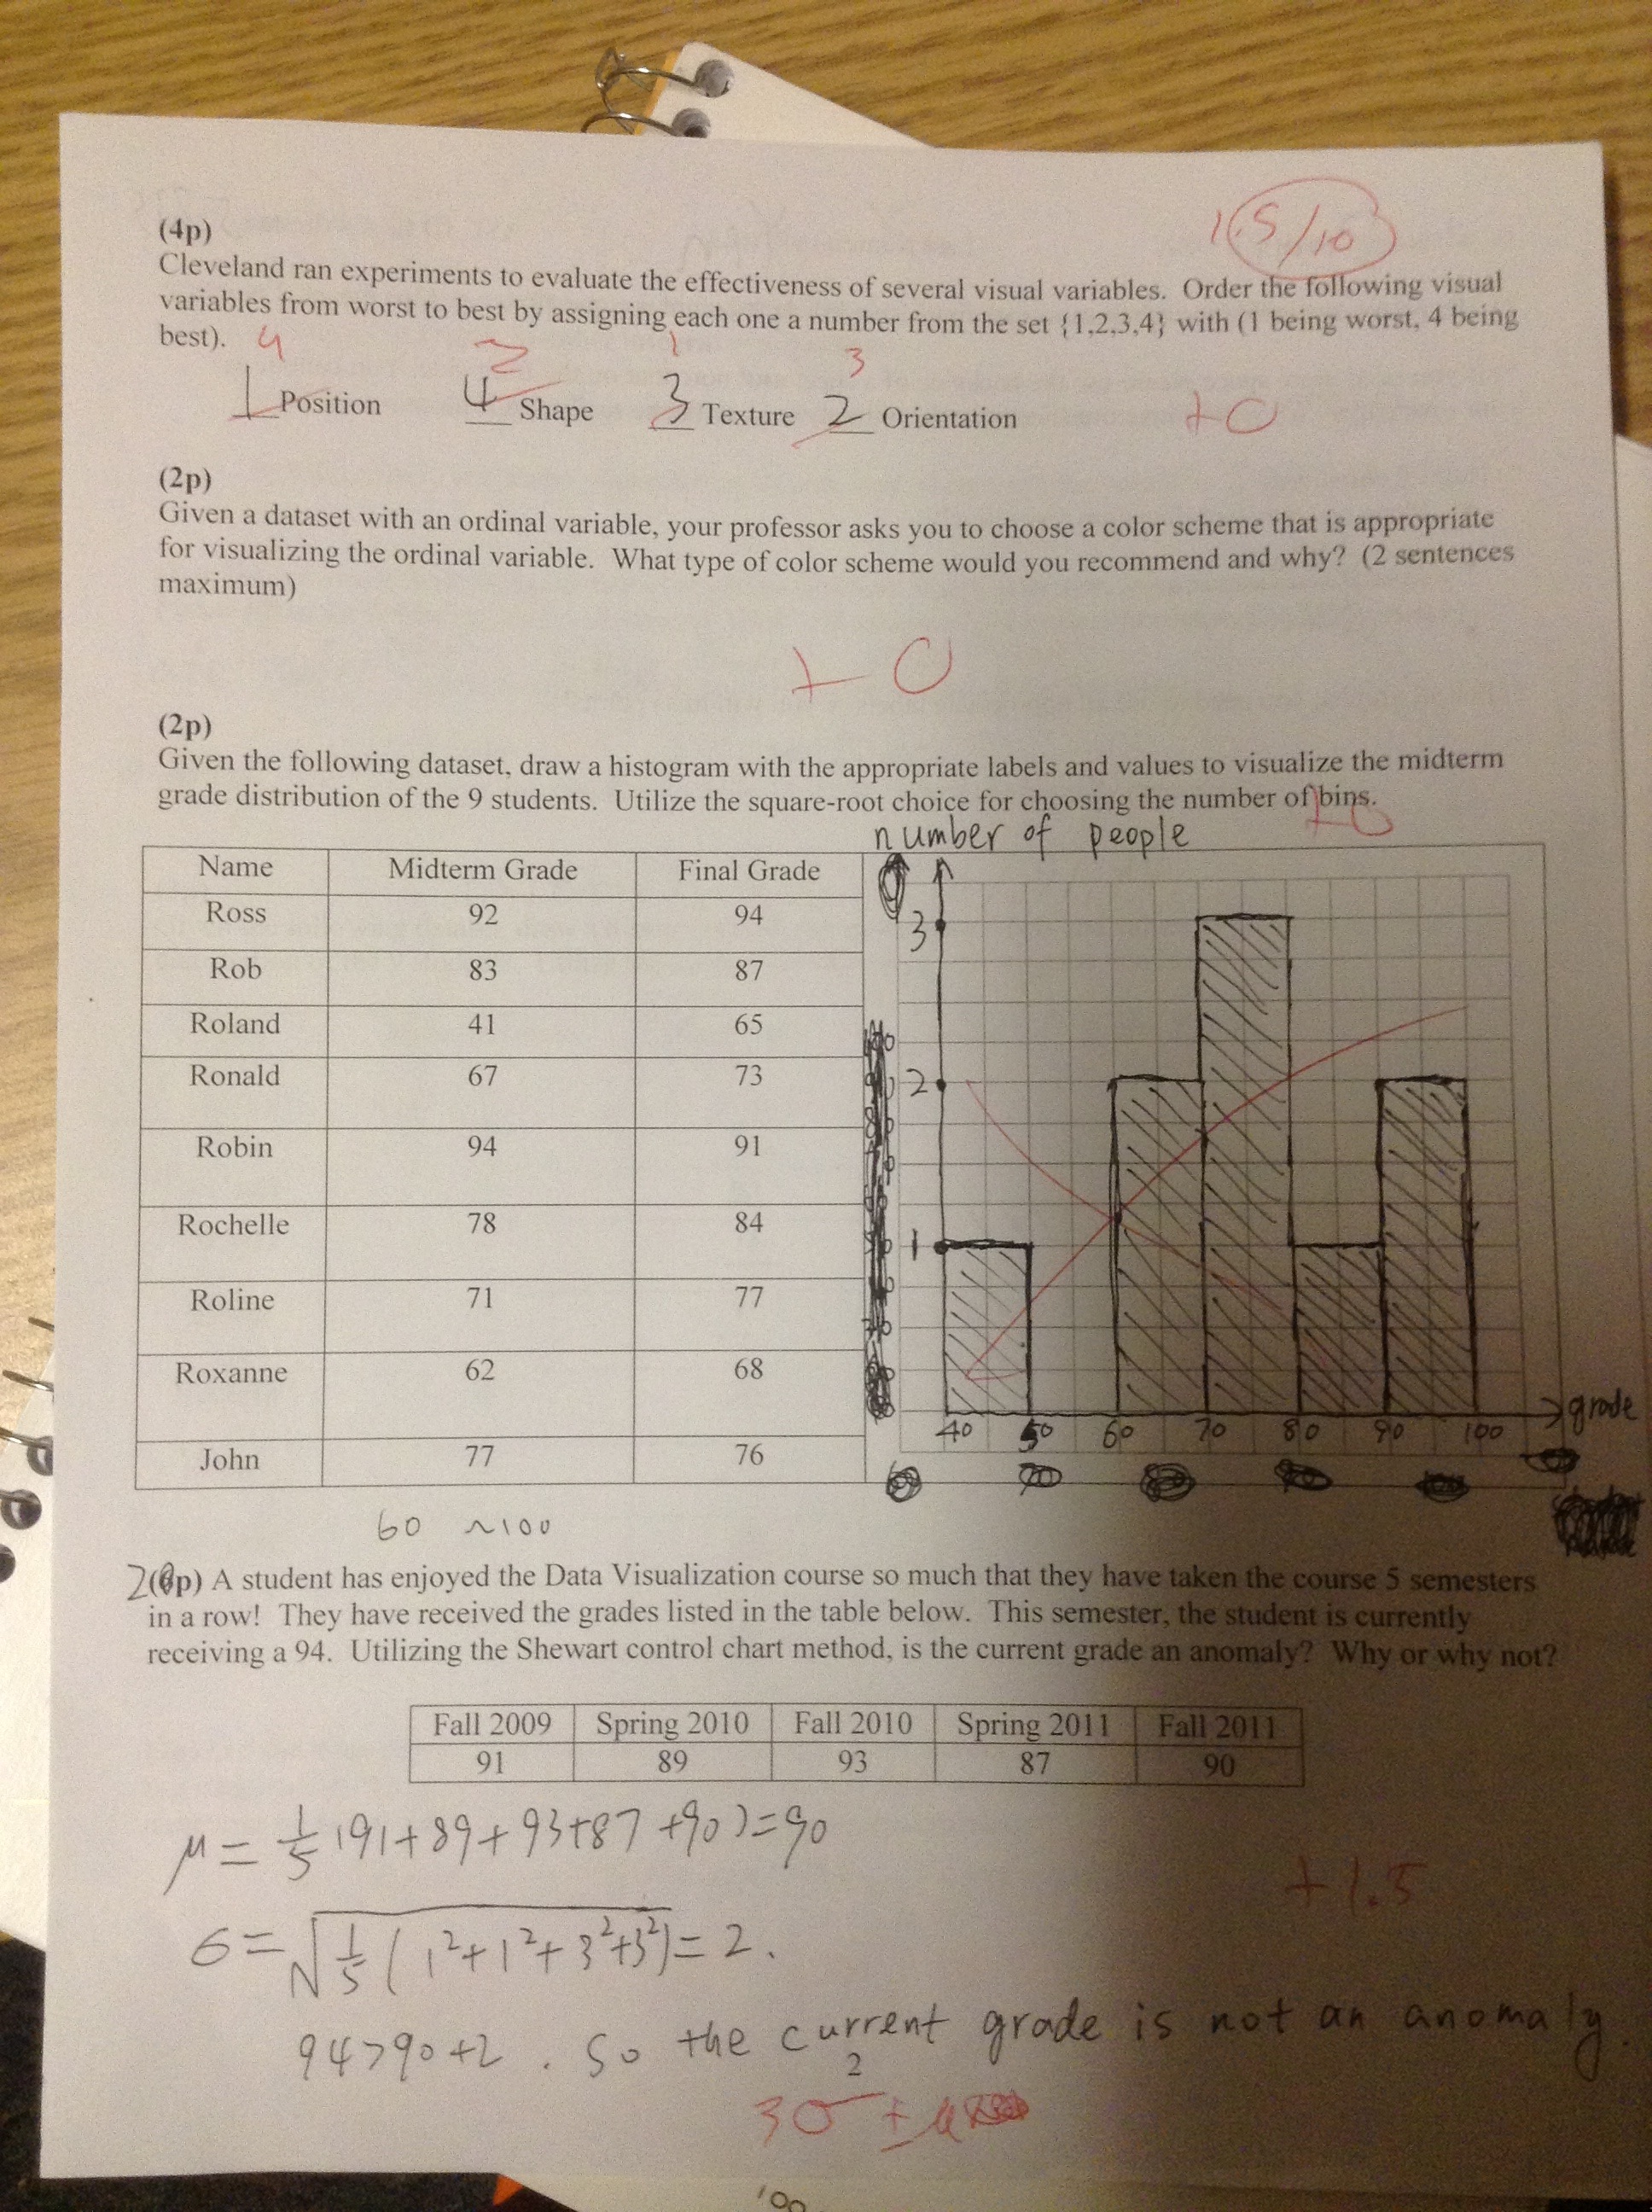 1.5/10
(4p)
Cleveland ran experiments to evaluate the effectiveness of several visual variables. Order the following visual
variables from worst to best by assigning each one a number from the set {1,2,3,4} with (1 being worst, 4 being
best).
4 2 1 3
1 Position 4 Shape 3 Texture 2 Orientation +0
(2p)
Given a dataset with an ordinal variable, your professor asks you to choose a color scheme that is appropriate
for visualizing the ordinal variable. What type of color scheme would you recommend and why? (2 sentences
maximum)
+0
(2p)
Given the following dataset, draw a histogram with the appropriate labels and values to visualize the midterm
grade distribution of the 9 students. Utilize the square-root choice for choosing the number of bins.
+0
number of people
Name Midterm Grade Final Grade
Ross 92 94
Rob 83 87
Roland 41 65
Ronald 67 73
Robin 94 91
Rochelle 78 84
Roline 71 77
Roxanne 62 68
John 77 76
3
2
1
40 50 60 70 80 90 100
grade
60 ~100
2(p) A student has enjoyed the Data Visualization course so much that they have taken the course 5 semesters
in a row! They have received the grades listed in the table below. This semester, the student is currently
receiving a 94. Utilizing the Shewart control chart method, is the current grade an anomaly? Why or why not?
Fall 2009 Spring 2010 Fall 2010 Spring 2011 Fall 2011
91 89 93 87 90
μ = 1/5 (91+89+93+87+90)=90
+1.5
σ = √1/5 (1²+1²+3²+3²) = 2.
94>90+2. So the current grade is not an anomaly.
2
3σ ± μ